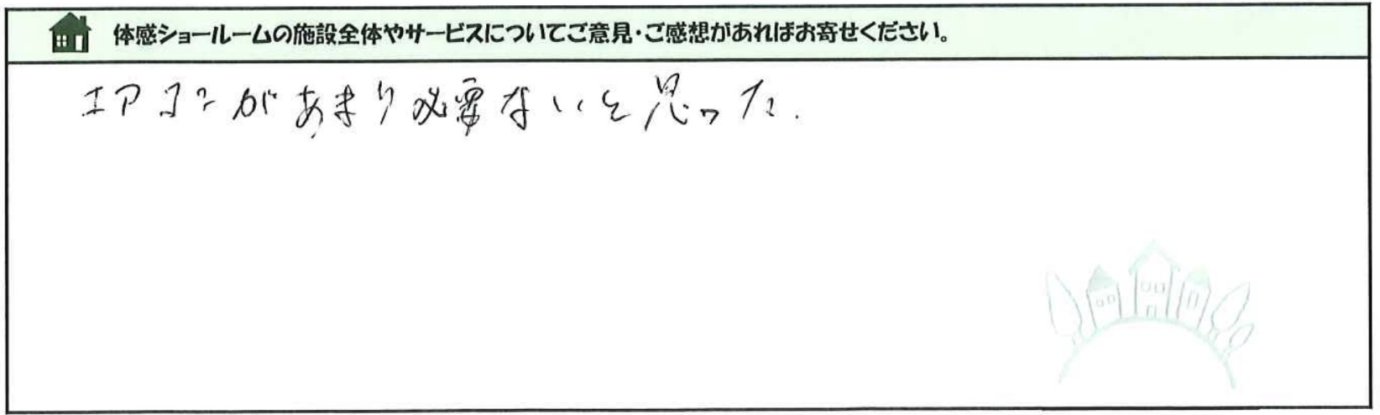 体感ショールームの施設全体やサービスについてご意見・ご感想があればお寄せください。
エアコンがあまり必要ないと思った.